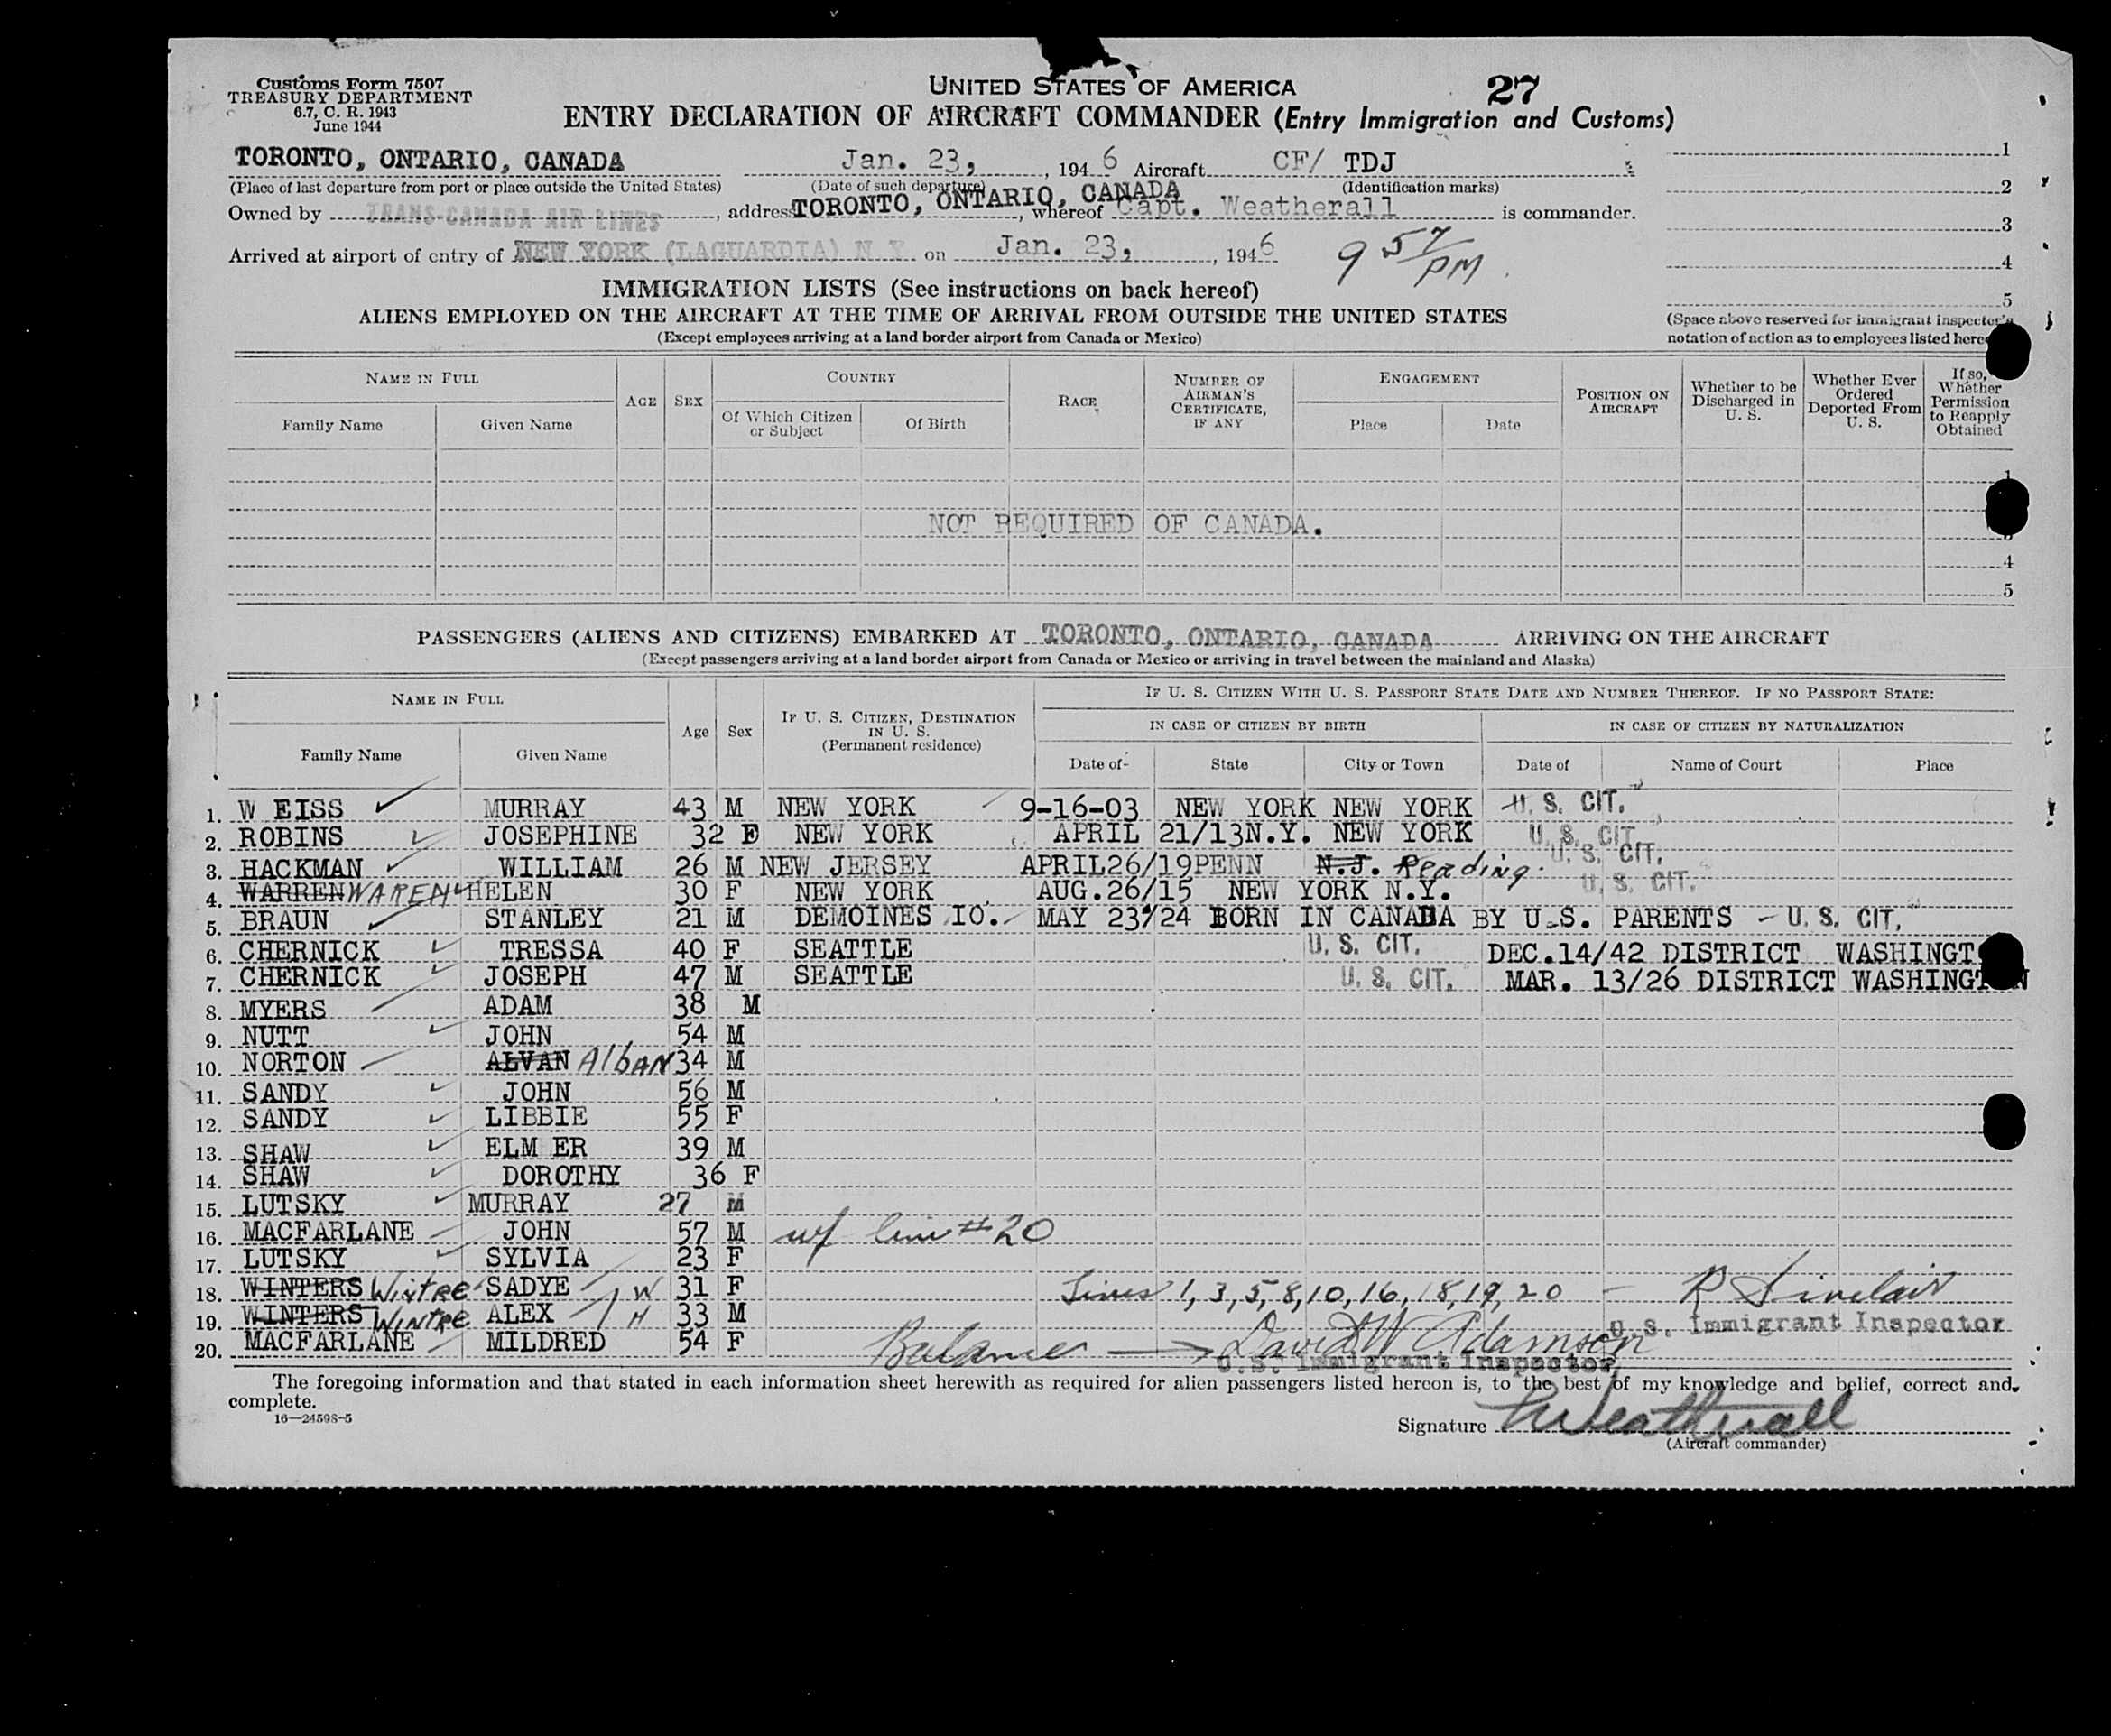 Customs Form 7507
TREASURY DEPARTMENT
6.7, C. R. 1943
June 1944
UNITED STATES OF AMERICA
27
ENTRY DECLARATION OF AIRCRAFT COMMANDER (Entry Immigration and Customs)
TORONTO, ONTARIO, CANADA Jan. 23, , 194 6 Aircraft CF/ TDJ
(Place of last departure from port or place outside the United States) (Date of such departure) (Identification marks)
Owned by TRANS-CANADA AIR LINES , address TORONTO, ONTARIO, CANADA , whereof Capt. Weatherall is commander.
Arrived at airport of entry of NEW YORK (LAGUARDIA) N.Y. on Jan. 23, , 194 6 9 57 PM
1
2
3
4
5
(Space above reserved for immigrant inspector's
notation of action as to employees listed
IMMIGRATION LISTS (See instructions on back hereof)
ALIENS EMPLOYED ON THE AIRCRAFT AT THE TIME OF ARRIVAL FROM OUTSIDE THE UNITED STATES
(Except employees arriving at a land border airport from Canada or Mexico)
NAME IN FULL
Family Name Given Name
AGE SEX
COUNTRY
Of Which Citizen or Subject
Of Birth
RACE
NUMBER OF AIRMAN'S CERTIFICATE, IF ANY
ENGAGEMENT
Place Date
POSITION ON AIRCRAFT
Whether to be Discharged in U. S.
Whether Ever Ordered Deported From U. S.
If so, Whether Permission to Reapply Obtained
1
NOT REQUIRED OF CANADA.
4
5
PASSENGERS (ALIENS AND CITIZENS) EMBARKED AT TORONTO, ONTARIO, CANADA ARRIVING ON THE AIRCRAFT
(Except passengers arriving at a land border airport from Canada or Mexico or arriving in travel between the mainland and Alaska)
NAME IN FULL
Family Name Given Name
Age Sex
IF U. S. CITIZEN, DESTINATION IN U. S.
(Permanent residence)
IF U. S. CITIZEN WITH U. S. PASSPORT STATE DATE AND NUMBER THEREOF. IF NO PASSPORT STATE:
IN CASE OF CITIZEN BY BIRTH IN CASE OF CITIZEN BY NATURALIZATION
Date of State City or Town Date of Name of Court Place
1. W EISS MURRAY 43 M NEW YORK 9-16-03 NEW YORK NEW YORK U. S. CIT.
2. ROBINS JOSEPHINE 32 F NEW YORK APRIL 21/13 N.Y. NEW YORK U. S. CIT.
3. HACKMAN WILLIAM 26 M NEW JERSEY APRIL26/19 PENN N.J. Reading. U. S. CIT.
4. WARREN WAREN HELEN 30 F NEW YORK AUG.26/15 NEW YORK N.Y. U. S. CIT.
5. BRAUN STANLEY 21 M DEMOINES IO. MAY 23/24 BORN IN CANADA BY U.S. PARENTS - U. S. CIT.
6. CHERNICK TRESSA 40 F SEATTLE U. S. CIT. DEC.14/42 DISTRICT WASHINGT
7. CHERNICK JOSEPH 47 M SEATTLE U. S. CIT. MAR. 13/26 DISTRICT WASHINGTON
8. MYERS ADAM 38 M
9. NUTT JOHN 54 M
10. NORTON ALVAN AlbAN 34 M
11. SANDY JOHN 56 M
12. SANDY LIBBIE 55 F
13. SHAW ELM ER 39 M
14. SHAW DOROTHY 36 F
15. LUTSKY MURRAY 27 M
16. MACFARLANE JOHN 57 M w/ line #20
17. LUTSKY SYLVIA 23 F
18. WINTERS WintRE SADYE W 31 F Lines 1, 3, 5, 8, 10, 16, 18, 19, 20 - R Sinclair
19. WINTERS WINTRE ALEX H 33 M U. S. Immigrant Inspector
20. MACFARLANE MILDRED 54 F Balance David W Adamson
U.S. Immigrant Inspector
The foregoing information and that stated in each information sheet herewith as required for alien passengers listed hereon is, to the best of my knowledge and belief, correct and
complete.
16—24598-5
Signature Weatherall
(Aircraft commander)